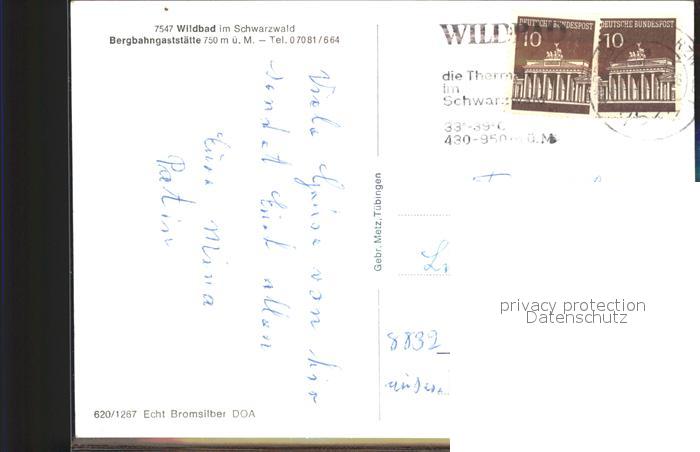 7547 Wildbad im Schwarzwald
Bergbahngaststätte 750 m ü. M. – Tel. 07081/664
DEUTSCHE BUNDESPOST
10
DEUTSCHE BUNDESPOST
10
WILDB
die Therm
im
Schwarz
33°-39°C
430-950m ü.M
Viele Grüße von hier
sendet Euch allen
Eure Mina
Patin
Gebr. Metz, Tübingen
8832
privacy protection
Datenschutz
620/1267 Echt Bromsilber DOA